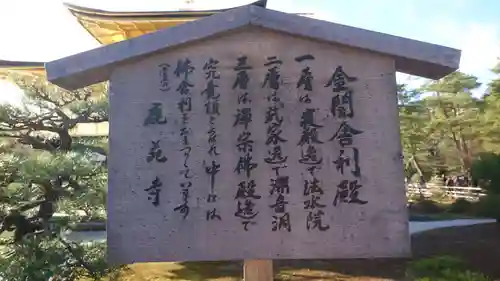 金閣舎利殿
一層は寝殿造で法水院
二層は武家造で潮音洞
三層は禅宗佛殿造で
究竟頂と云われ中には
佛舎利をおまつりしています
鹿苑寺